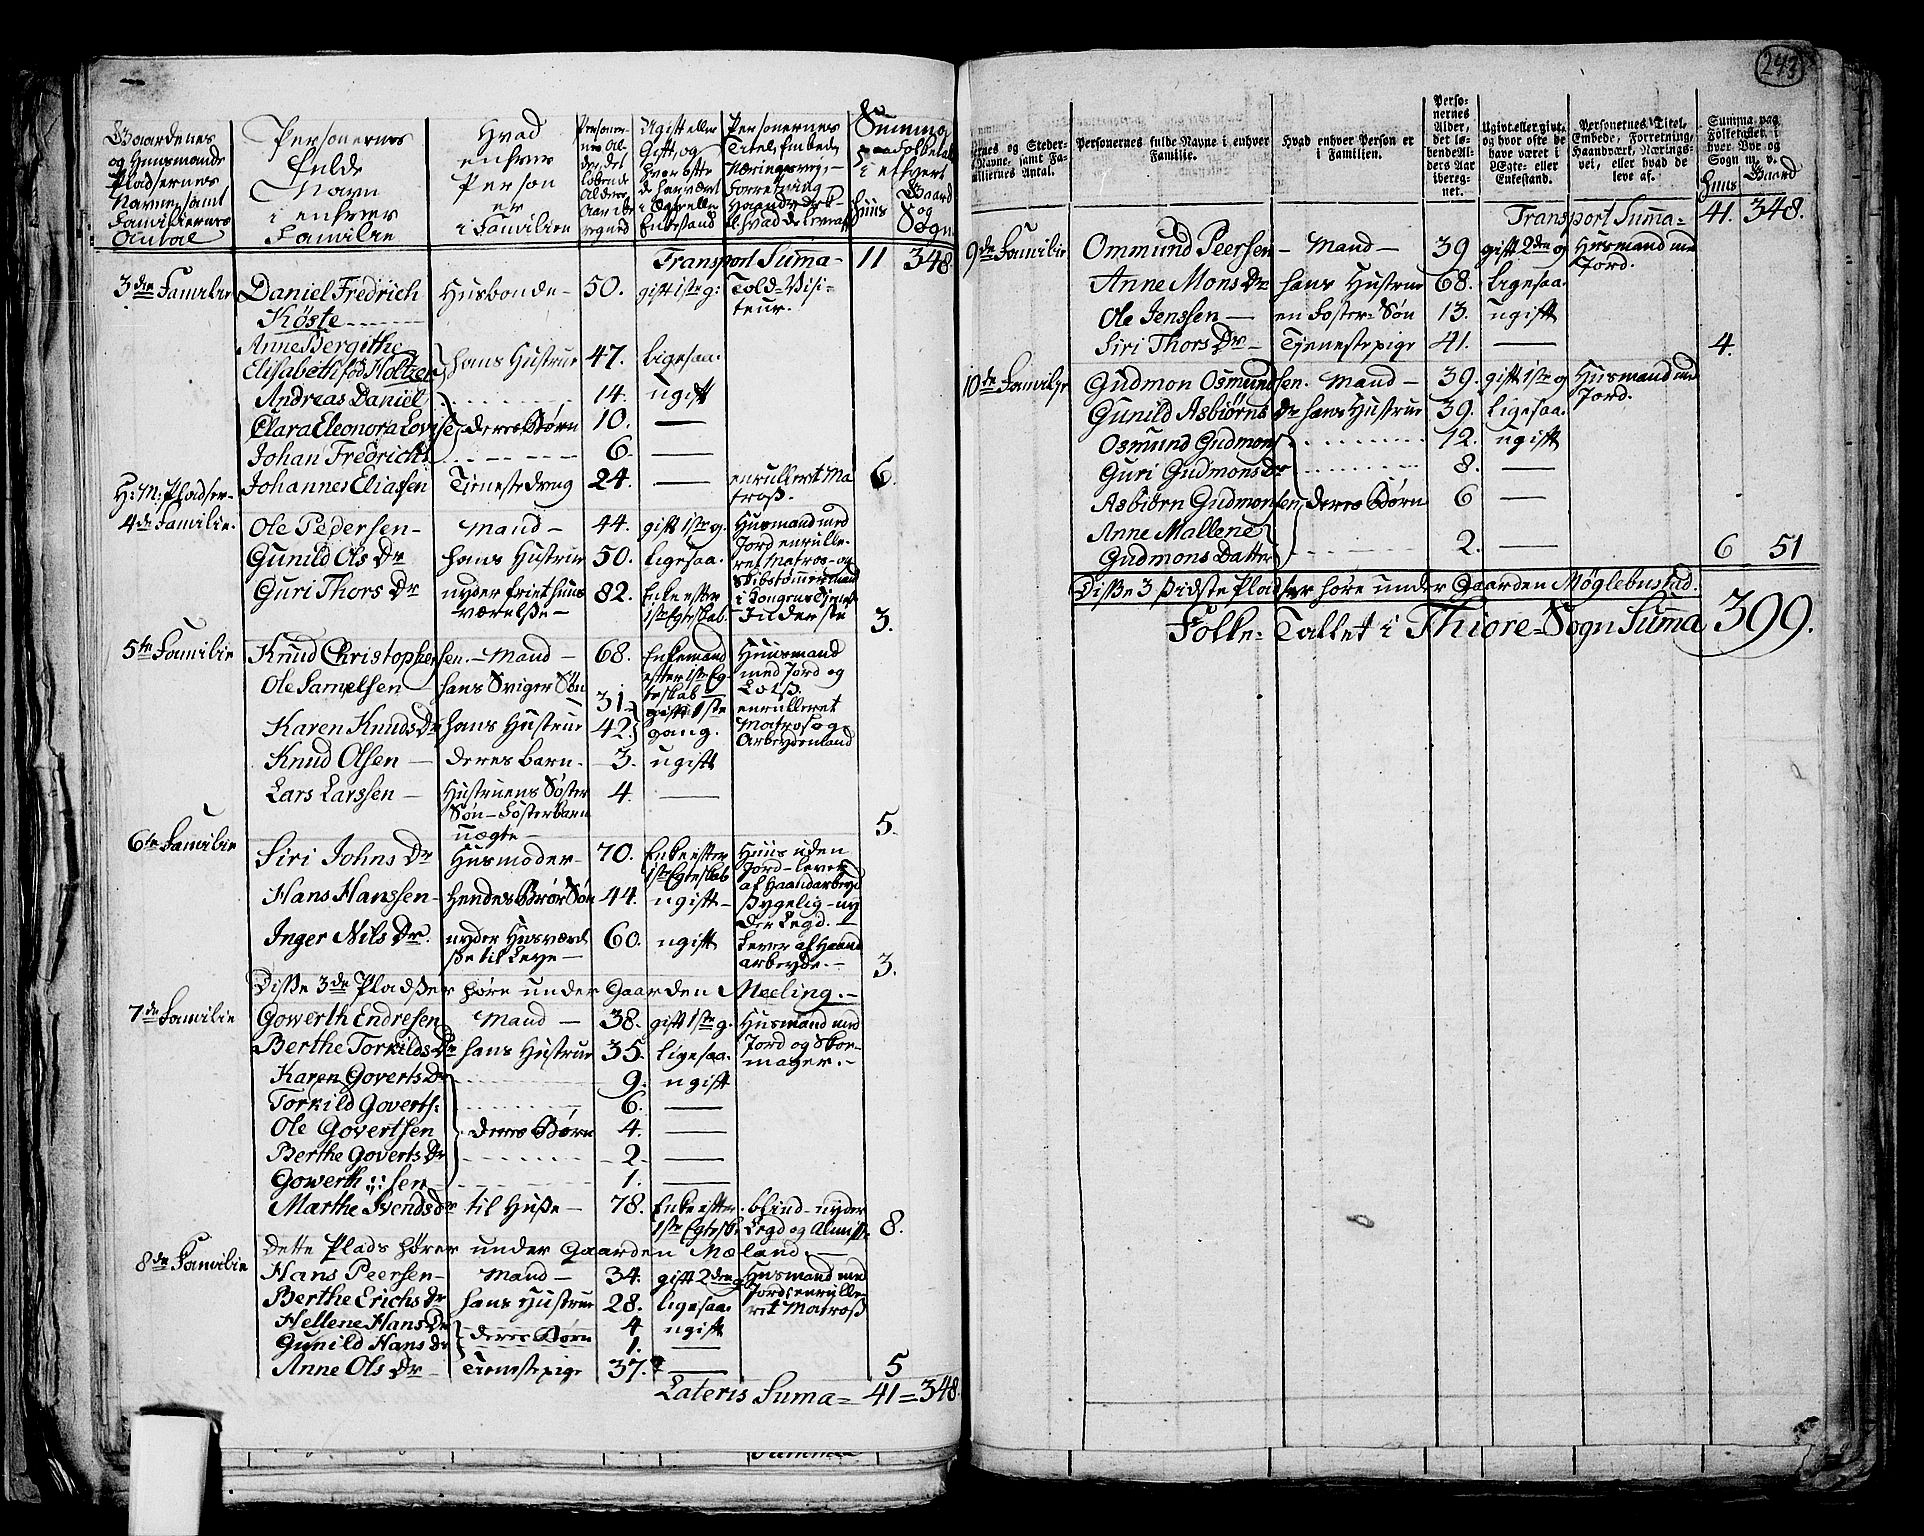 Gaardenes og Huusmands Pladsernes Navne, samt Familiernes Antal
Personernes fulde Navn i enhver Familie
Hvad enhver Person er i Familien
Personernes Alder, det løbende Alders Aar iberegned
Ugift eller Gift, og hvor ofte de har været i Egte eller Enkestand
Personernes Titel, Embede
Summa paa Folketallet i ethvert Huus Gaard og Sogn
Transport Summa - 11 348
3die Familie Daniel Fredrich Köste Husbonde - 50. gift 1ste g: Told-Visiteur.
Anne Bergithe Elisabeth fød Holtzer hans Hustrue 47. ligesaa.
Andreas Daniel 14. ugift
Clara Eleonora Lovise deres Børn 10. —
Johan Fredrich 6. —
Johannes Eliassen Tienestedreng 24. — enrulleret Matroß. 6.
H: M: Pladser -
4de Familie. Ole Pedersen - Mand - 44. gift 1ste g. Husmand med Jord enrulleret Matros - og Skibstømmermand i Kongens Tieneste
Gunild Ols Dr hans Hustrue 50. ligesaa.
Guri Thors Dr nyder friet huusværelße - 82. Enke efter 1ste Egteskab. Inderste 3.
5te Familie Knud Christophersen. - Mand - 68. Enkemand efter 1ste Egteskab Huusmand med Jord og Lots.
Ole Samuelsen - hans Sviger Søn 31. gift 1ste gang. enrulleret Matros og Arbeydsmand
Karen Knuds Dr hans Hustrue 42.
Knud Olsen - deres barn. 3. ugift
Lars Larssen - Hustruens Søster Søn - Fosterbarn uægte - 4. — 5.
6te Familie Siri Johns Dr Husmoder - 70. Enke efter 1ste Egteskab Huus uden Jord - lever af Haandarbeyd
Hans Hanssen - Hendes Broer Søn 44. ugift - sygelig - nyder Legd. -
Inger Nils Dr. nyder Husværelße til Leye - 60. ugift Lever af Haandarbeyde. - 3.
Disse 3de Pladßer høre under Gaarden Meeling. -
7de Familie Gowerth Endresen Mand - 38. gift 1ste g. Husmand med Jord og Skoemager. -
Berthe Torkilds Dr hans Hustrue 35. ligesaa.
Karen Goverts Dr 9. ugift
Torkild Goverts: 6. —
Ole Govertsen deres Børn 4. —
Berthe Goverts Dr 2 —
Gowerth :::sen 1. —
Marthe Svends dr til Huße - 78. Enke efter 1ste Egtesk: blind - nyder Legd og Almisse 8.
Dette Plads hører under Gaarden Mæland. -
8de Familie Hans Peersen - Mand - 34. gift 2den g Husmand med Jord enrulleret Matroß
Berthe Erichs Dr hans Hustrue 28. ligesaa
Hellene Hans Dr deres Børn 4 ugift
Gunild Hans Dr 1. —
Anne Ols Dr - Tienestepige 37. — 5
Lateris Suma = 41 = 348.
Summa
243
Personernes fulde Navne i enhver Familie.
Hvad enhver Person er i Familien.
Personernes Alder, det løbende Alders Aar iberegnet.
Ugivt eller givt, og hvor ofte de have været i Ægte- eller Enkestand.
Personernes Titel, Embede, Forretning, Haandværk, Næringsvei, eller hvad de leve af.
Summa paa Folketallet i hver Bye og Sogn m. v.
Huus Gaard
Transport Summa = 41. 348.
9de Familie Ommund Peersen - Mand - 39 gift 2den g Husmand med Jord.
Anne Mons Dr hans Hustrue 68. Ligesaa
Ole Jenssen - en Foster-Søn 13. ugift
Siri Thors Dr - Tjenestepige 41. — 4.
10de Familie Gudmon Osmundsen. Mand - 39. gift 1ste g Husmand med Jord.
Gunild Asbiörns Dr hans Hustrue 39. Ligesaa.
Osmund Gudmons 12. ugift
Guri Gudmons Dr 8. —
Asbiörn Gudmonsen deres Børn 6 —
Anne Mallene Gudmons Datter 2. — 6 51
Disse 3 sidste Pladser høre under Gaarden Møglebustad.
Folke-Tallet i Thiore-Sogn Suma 399.